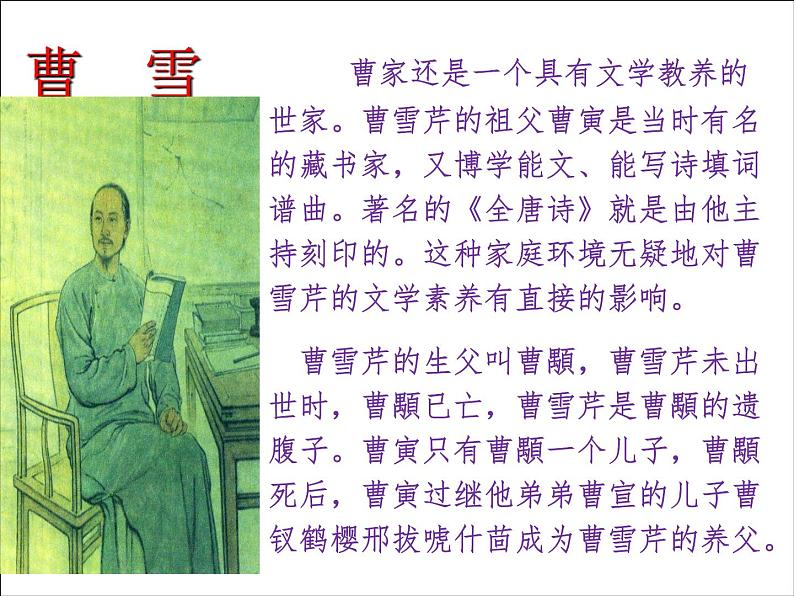 曹 雪
曹家还是一个具有文学教养的
世家。曹雪芹的祖父曹寅是当时有名
的藏书家，又博学能文、能写诗填词
谱曲。著名的《全唐诗》就是由他主
持刻印的。这种家庭环境无疑地对曹
雪芹的文学素养有直接的影响。
曹雪芹的生父叫曹顒，曹雪芹未出
世时，曹顒已亡，曹雪芹是曹顒的遗
腹子。曹寅只有曹顒一个儿子，曹顒
死后，曹寅过继他弟弟曹宣的儿子曹
钗鹤樱邢拔唬什苗成为曹雪芹的养父。